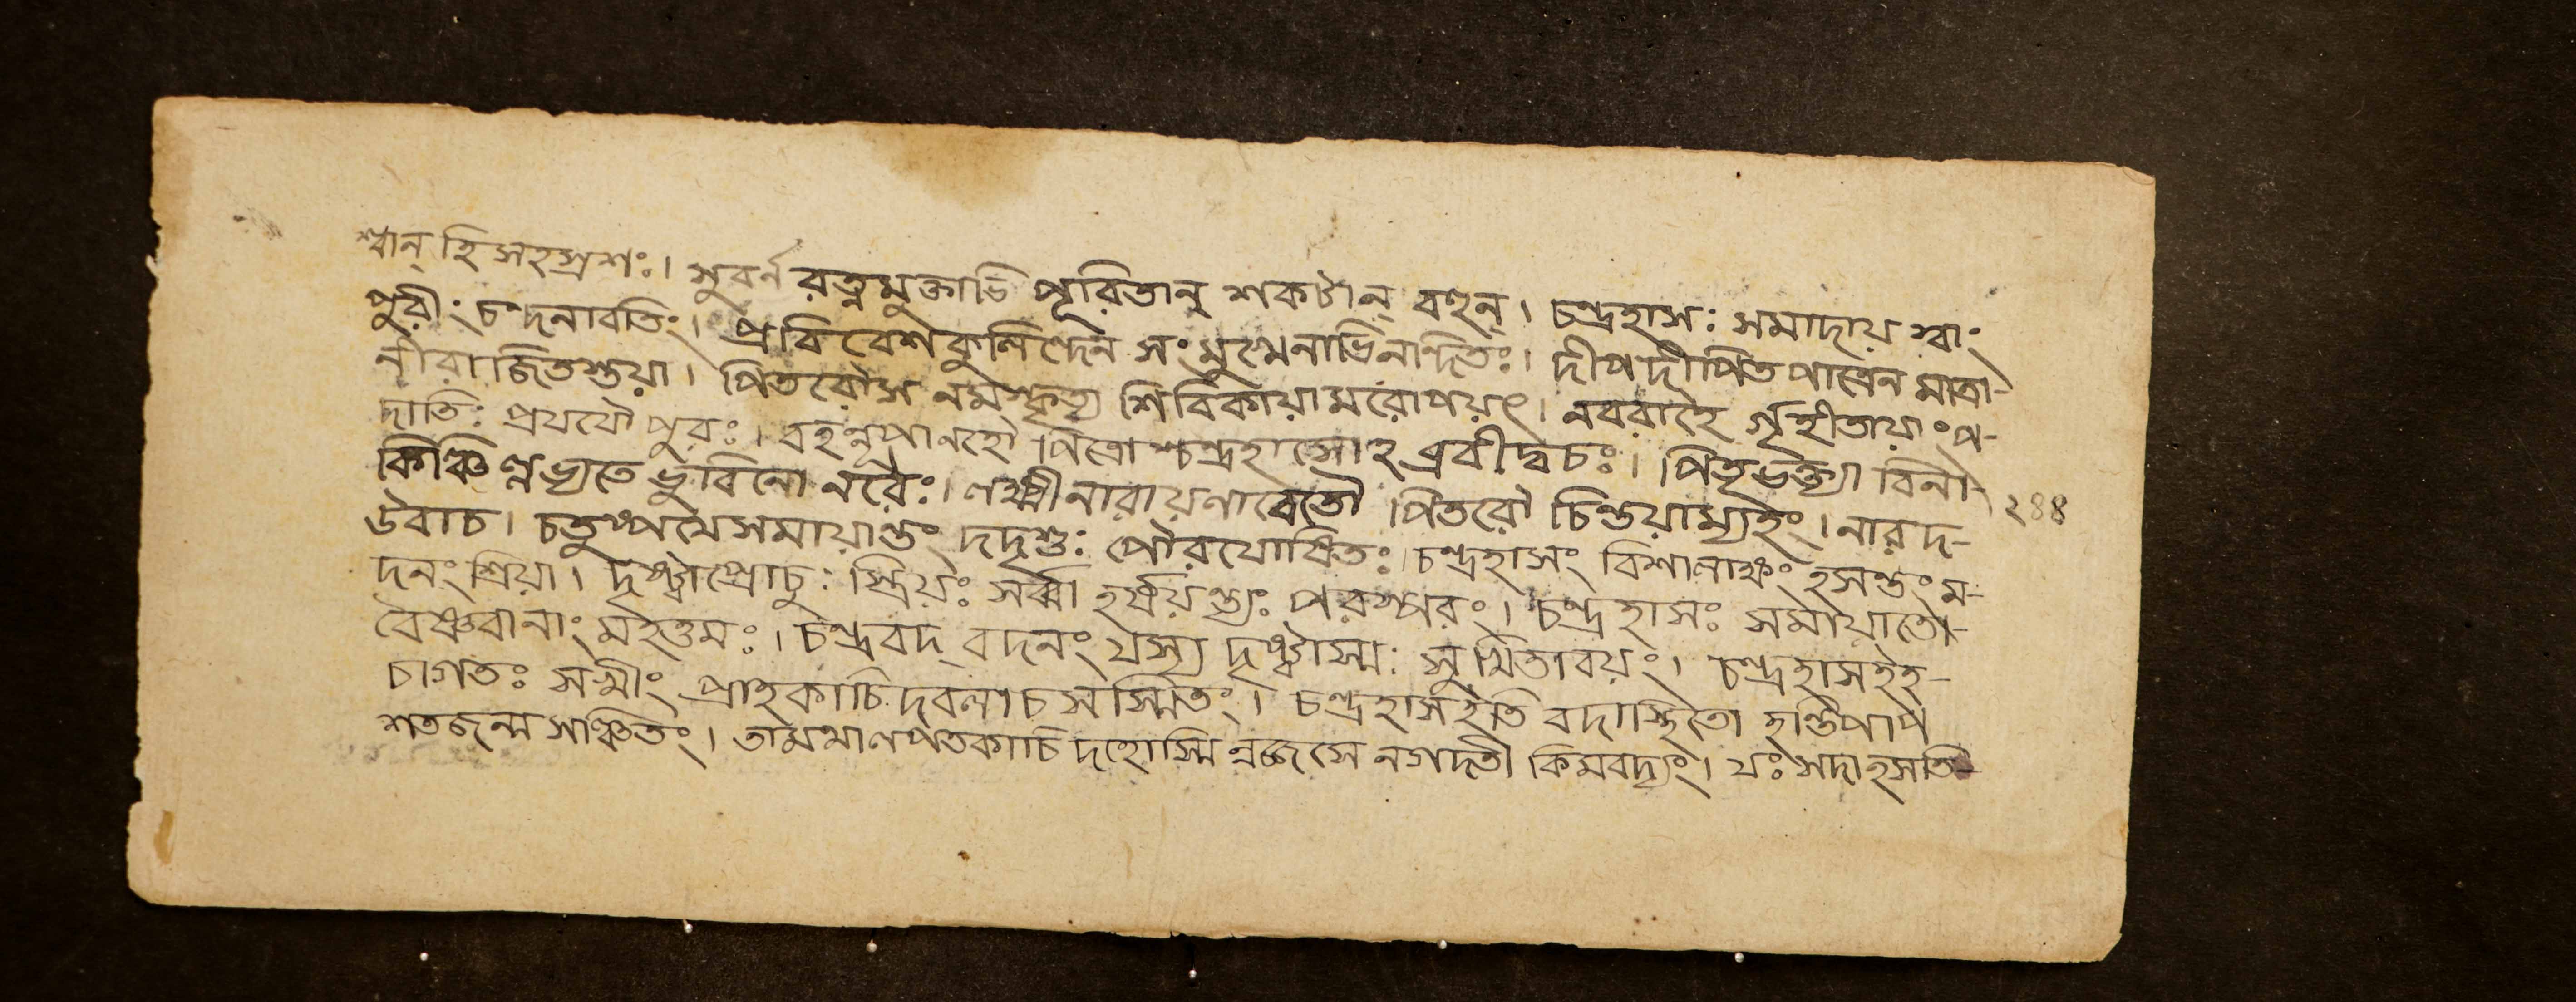 শ্বান্ হি সহস্রশঃ। সুবর্ন রত্নমুক্তাভি পূরিতান্ শকটান্ বহূন্। চন্দ্রহাসঃ সমাদায় স্বাং
পুরীং চন্দনাবতিং। প্রবিবেশ কুলিন্দেন সংমুখেনাভিনন্দিতঃ। দীপদীপিত পাত্রেন মাত্রা-
নীরাজিতস্তয়া। পিতরৌস নমস্কৃত্য শিবিকায়ামরোপয়ৎ। নববাহৈ র্গৃহীতায়াং প-
দাতিঃ প্রযযৌ পুরঃ। বহন্নূপানহৌ পিত্রোশ্চন্দ্রহাসোহ ব্রবীদ্বচঃ। পিতৃভক্ত্যা বিনা-
কিঞ্চিণ্নভ্যতে ভুবিনো নরৈঃ। লক্ষ্মীনারায়ণাবেতৌ পিতরৌ চিন্তয়াম্যহং। নারদ-
উবাচ। চতুষ্পথে সমায়ান্তং দদৃশুঃ পৌরযোষিতঃ। চন্দ্রহাসং বিশালাক্ষং হসন্তং ম-
দনং শ্রিয়া। দৃষ্ট্বা প্রোচুঃ স্ত্রিয়ঃ সর্ব্বা হর্ষয়ন্ত্যঃ পরস্পরং। চন্দ্রহাসঃ সমায়াতো-
বৈষ্ণবানাং মহত্তমঃ। চন্দ্রবদ্ বদনং যস্য দৃষ্ট্বাস্মঃ সুখিতাবয়ং। চন্দ্রহাসইহ-
চাগতঃ সখীং প্রাহকাচিদবলা চ সস্মিতং। চন্দ্রহাসইতি বদাস্থিতো হন্তিপাপ
শতজন্ম সঞ্চিতং। তামথালপতকাচিদহোস্মি ন্নজ্জসে নগদতী কিমবদ্যং। যঃ সদাহসতি-
২৪৪